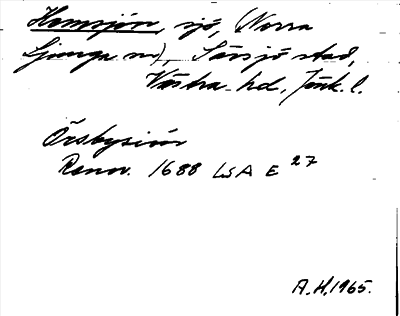 Hemsjön, sjö, Norra
Ljunga sn), Sävsjö stad,
Västra hd, Jönk. l.
Örsbysiöö
Renov. 1688 LSA E 27
A.H. 1965.